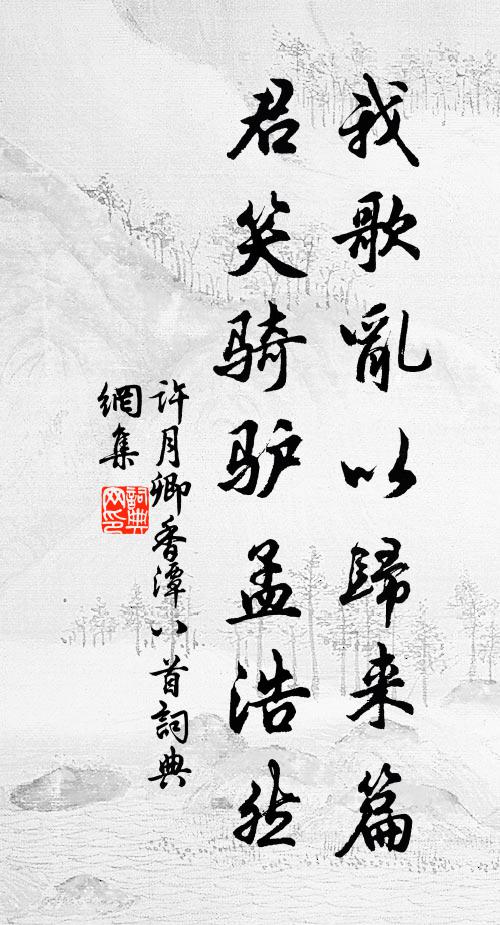 我歌亂以歸来篇
君笑骑驴孟浩然
许月卿香潭八首詞典
網集
詞典
网印